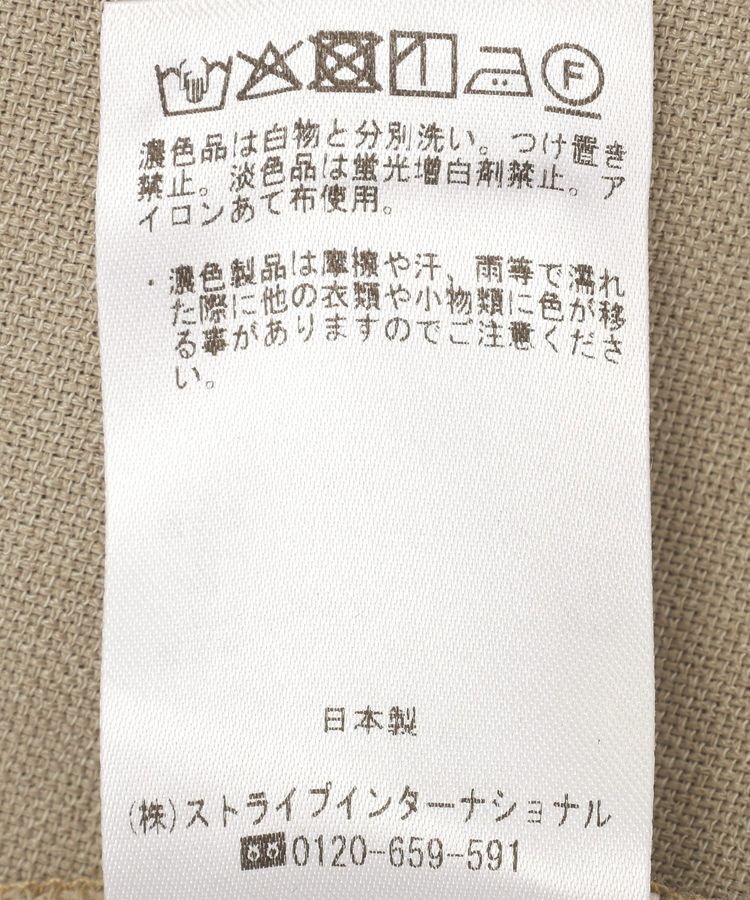 F
濃色品は白物と分別洗い。つけ置き
禁止。淡色品は蛍光増白剤禁止。ア
イロンあて布使用。
・濃色製品は摩擦や汗、雨等で濡れ
た際に他の衣類や小物類に色が移
る事がありますのでご注意くださ
い。
日本製
(株)ストライプインターナショナル
0120-659-591